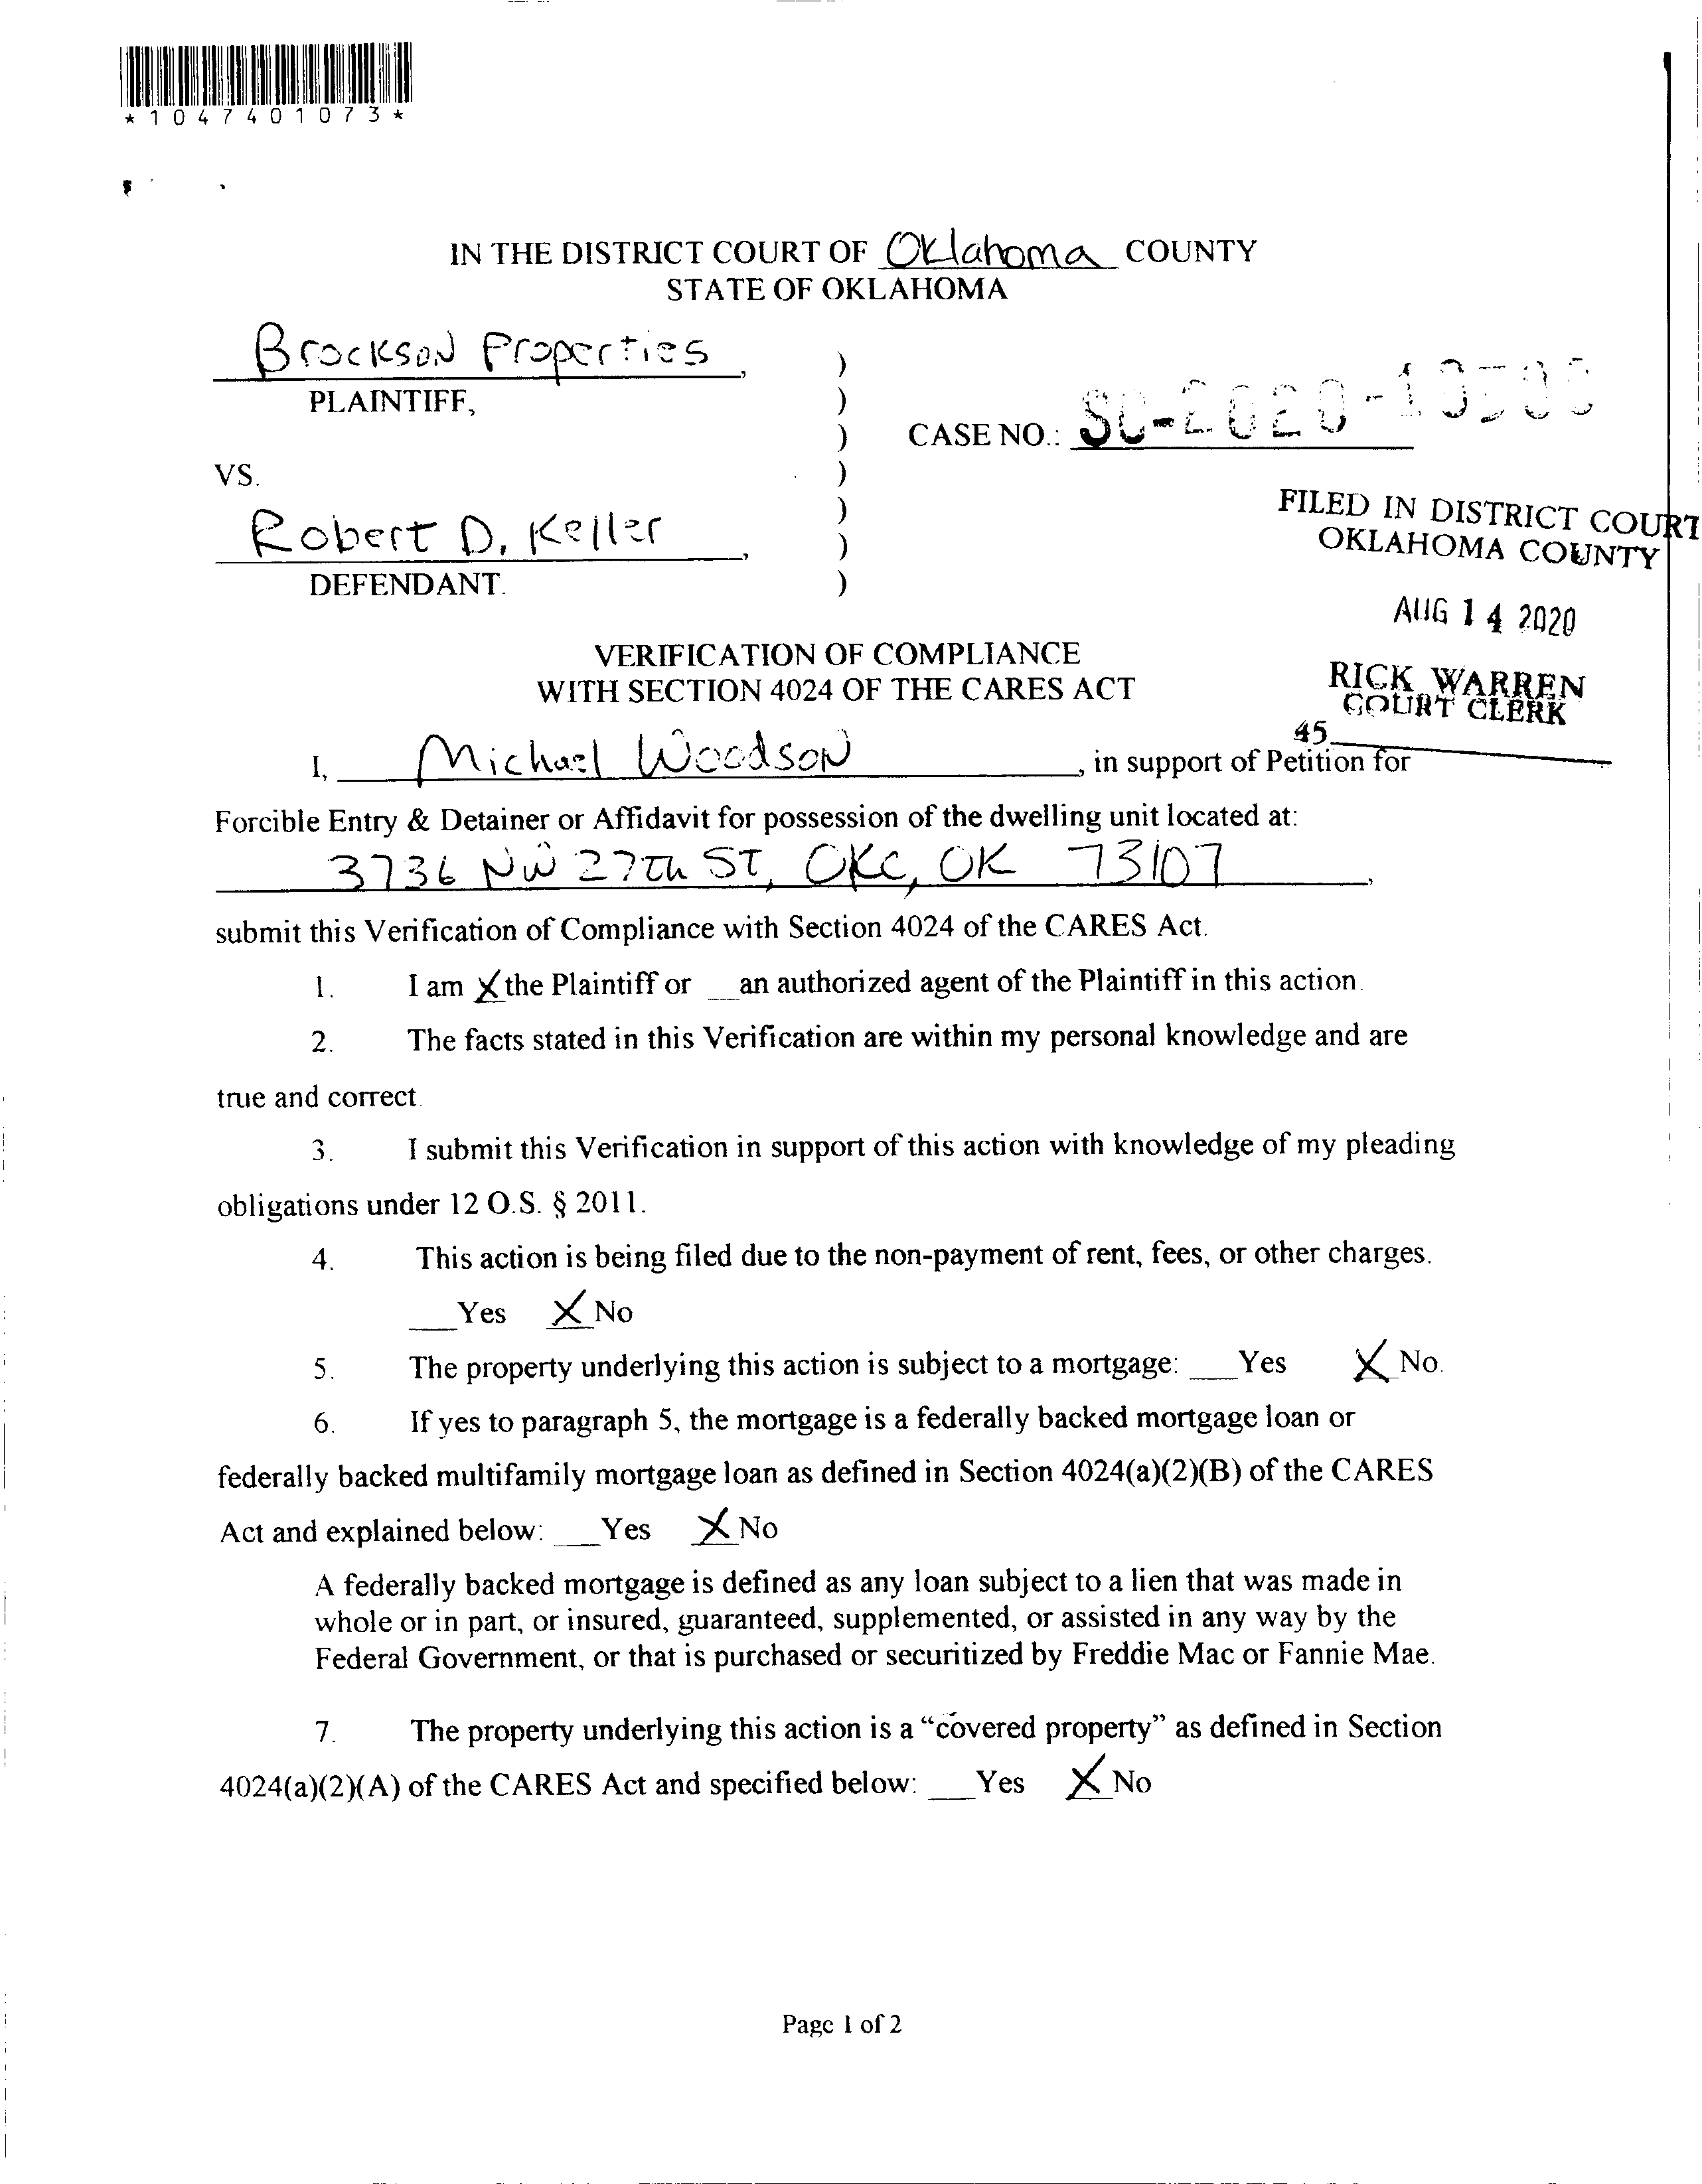 *1047401073*
IN THE DISTRICT COURT OF Oklahoma COUNTY
STATE OF OKLAHOMA
Brockson Properties,
PLAINTIFF,
CASE NO.: SC-2020-
VS.
Robert D. Keller,
DEFENDANT.
FILED IN DISTRICT COURT
OKLAHOMA COUNTY
AUG 14 2020
RICK WARREN
COURT CLERK
45
VERIFICATION OF COMPLIANCE
WITH SECTION 4024 OF THE CARES ACT
I, Michael Woodson, in support of Petition for
Forcible Entry & Detainer or Affidavit for possession of the dwelling unit located at:
3736 NW 27th ST, OKC, OK 73107,
submit this Verification of Compliance with Section 4024 of the CARES Act.
1. I am X the Plaintiff or __ an authorized agent of the Plaintiff in this action.
2. The facts stated in this Verification are within my personal knowledge and are
true and correct.
3. I submit this Verification in support of this action with knowledge of my pleading
obligations under 12 O.S. § 2011.
4. This action is being filed due to the non-payment of rent, fees, or other charges.
___Yes X No
5. The property underlying this action is subject to a mortgage: ___Yes X No.
6. If yes to paragraph 5, the mortgage is a federally backed mortgage loan or
federally backed multifamily mortgage loan as defined in Section 4024(a)(2)(B) of the CARES
Act and explained below: ___Yes X No
A federally backed mortgage is defined as any loan subject to a lien that was made in
whole or in part, or insured, guaranteed, supplemented, or assisted in any way by the
Federal Government, or that is purchased or securitized by Freddie Mac or Fannie Mae.
7. The property underlying this action is a “covered property” as defined in Section
4024(a)(2)(A) of the CARES Act and specified below: ___Yes X No
Page 1 of 2